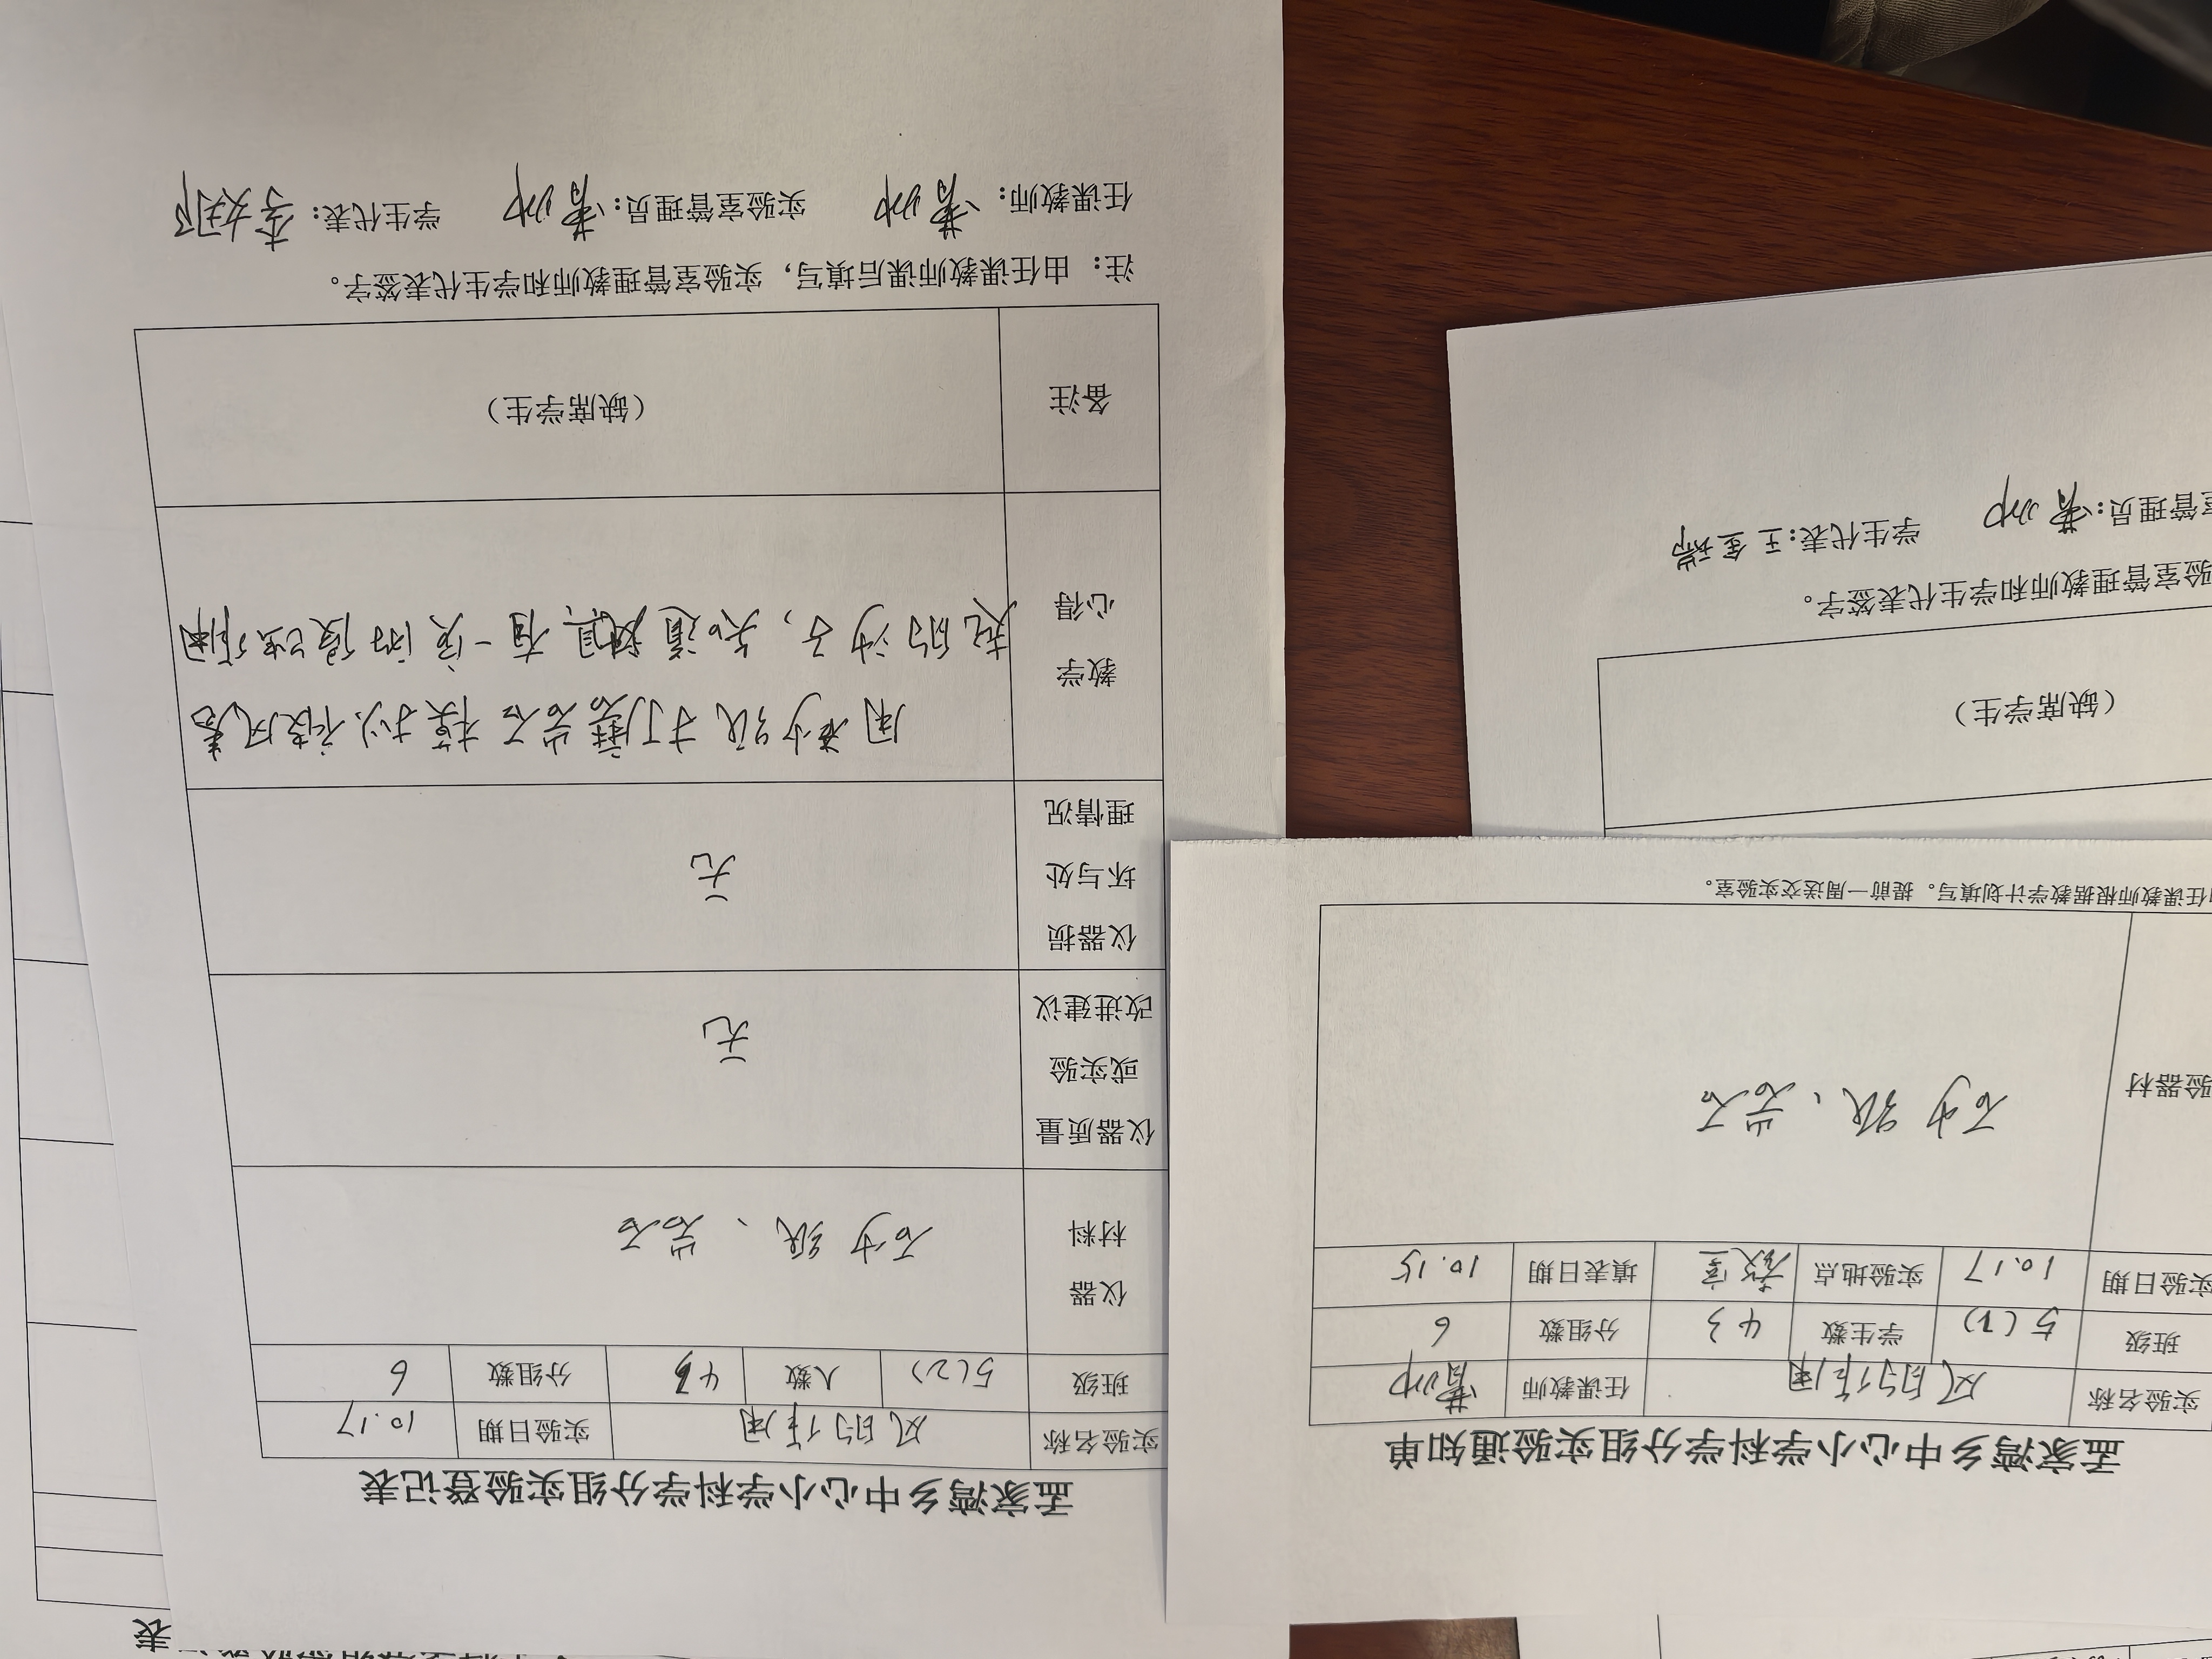 孟家湾乡中心小学科学分组实验登记表
实验名称 风的作用 实验日期 10.17
班级 5(2) 人数 43 分组数 6
仪器材料 砂纸、岩石
仪器质量或实验改进建议 无
仪器损坏与处理情况 无
教学心得 用砂纸打磨岩石模拟被风卷
起的沙子，知道风具有一定的侵蚀作用
备注 (缺席学生)
注：由任课教师课后填写，实验室管理教师和学生代表签字。
任课教师： 实验室管理员： 学生代表：李
孟家湾乡中心小学科学分组实验通知单
实验名称 风的作用 任课教师
班级 5(2) 学生数 43 分组数 6
实验日期 10.17 实验地点 教室 填表日期 10.15
验器材 砂纸、岩石
任课教师根据教学计划填写。提前一周送交实验室。
(缺席学生)
验室管理教师和学生代表签字。
室管理员： 学生代表：王金瑞
表